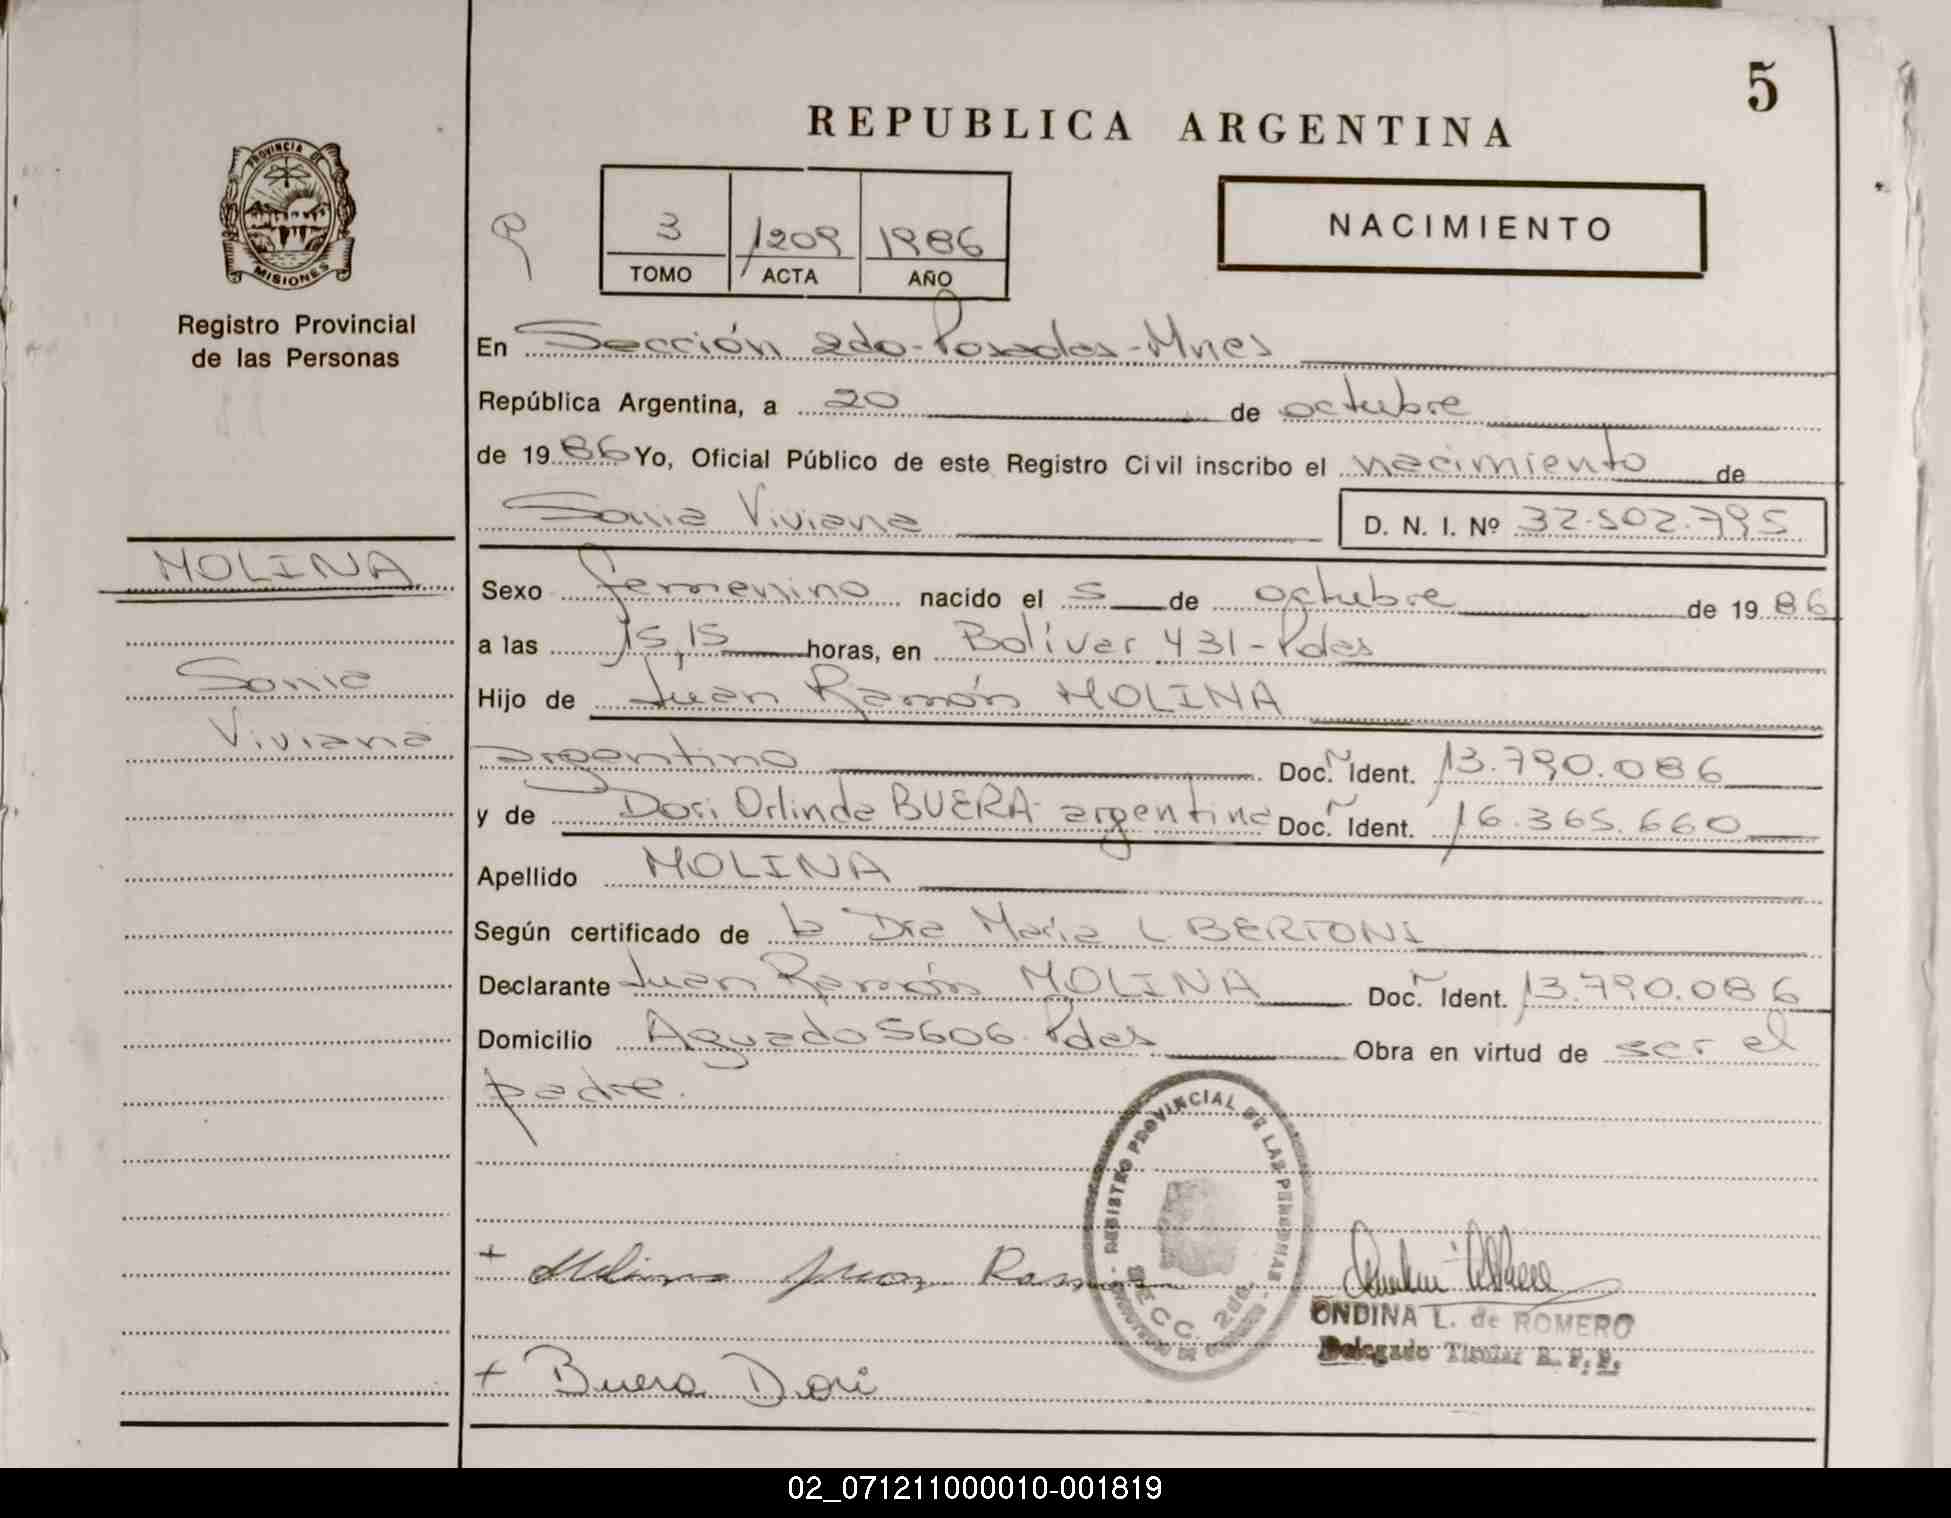 5
REPUBLICA ARGENTINA
PROVINCIA DE
MISIONES
Registro Provincial
de las Personas
3 1209 1986
TOMO ACTA AÑO
NACIMIENTO
En Sección 2da-Posadas-Mnes
República Argentina, a 20 de octubre
de 1986 Yo, Oficial Público de este Registro Civil inscribo el nacimiento de
Sonia Viviana D. N. I. Nº 32.502.795
MOLINA
Sonia
Viviana
Sexo femenino nacido el 5 de octubre de 1986
a las 15,15 horas, en Bolívar 431-Pdas
Hijo de Juan Ramón MOLINA
argentino Doc. Ident. 13.790.086
y de Dori Orlinda BUERA argentina Doc. Ident. 16.365.660
Apellido MOLINA
Según certificado de la Dra María L BERTONI
Declarante Juan Ramón MOLINA Doc. Ident. 13.790.086
Domicilio Aguado 5606 Pdas Obra en virtud de ser el
padre.
REGISTRO PROVINCIAL DE LAS PERSONAS
SECC. 2da
+ Molina Juan Ramon
ONDINA L. de ROMERO
Delegado Titular R. P. P.
+ Buera Dori
02_071211000010-001819